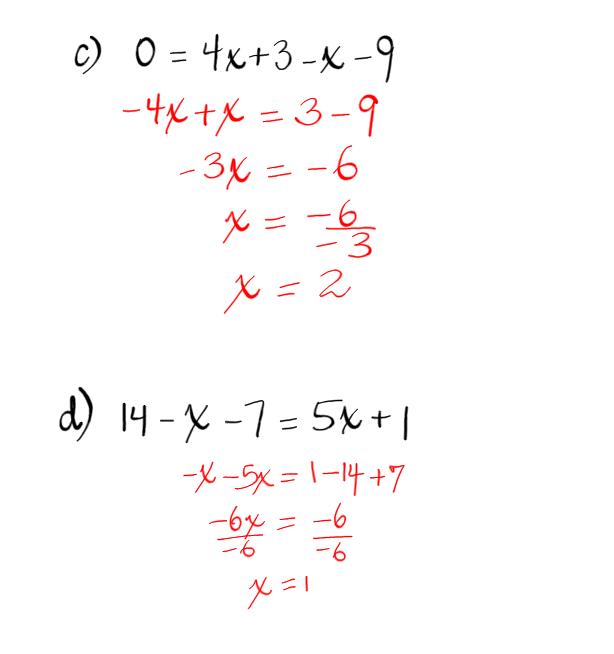 c) 0 = 4x+3-x-9
-4x+x = 3-9
-3x = -6
x = -6/-3
x = 2
d) 14-x-7 = 5x+1
-x-5x = 1-14+7
-6x/-6 = -6/-6
x = 1